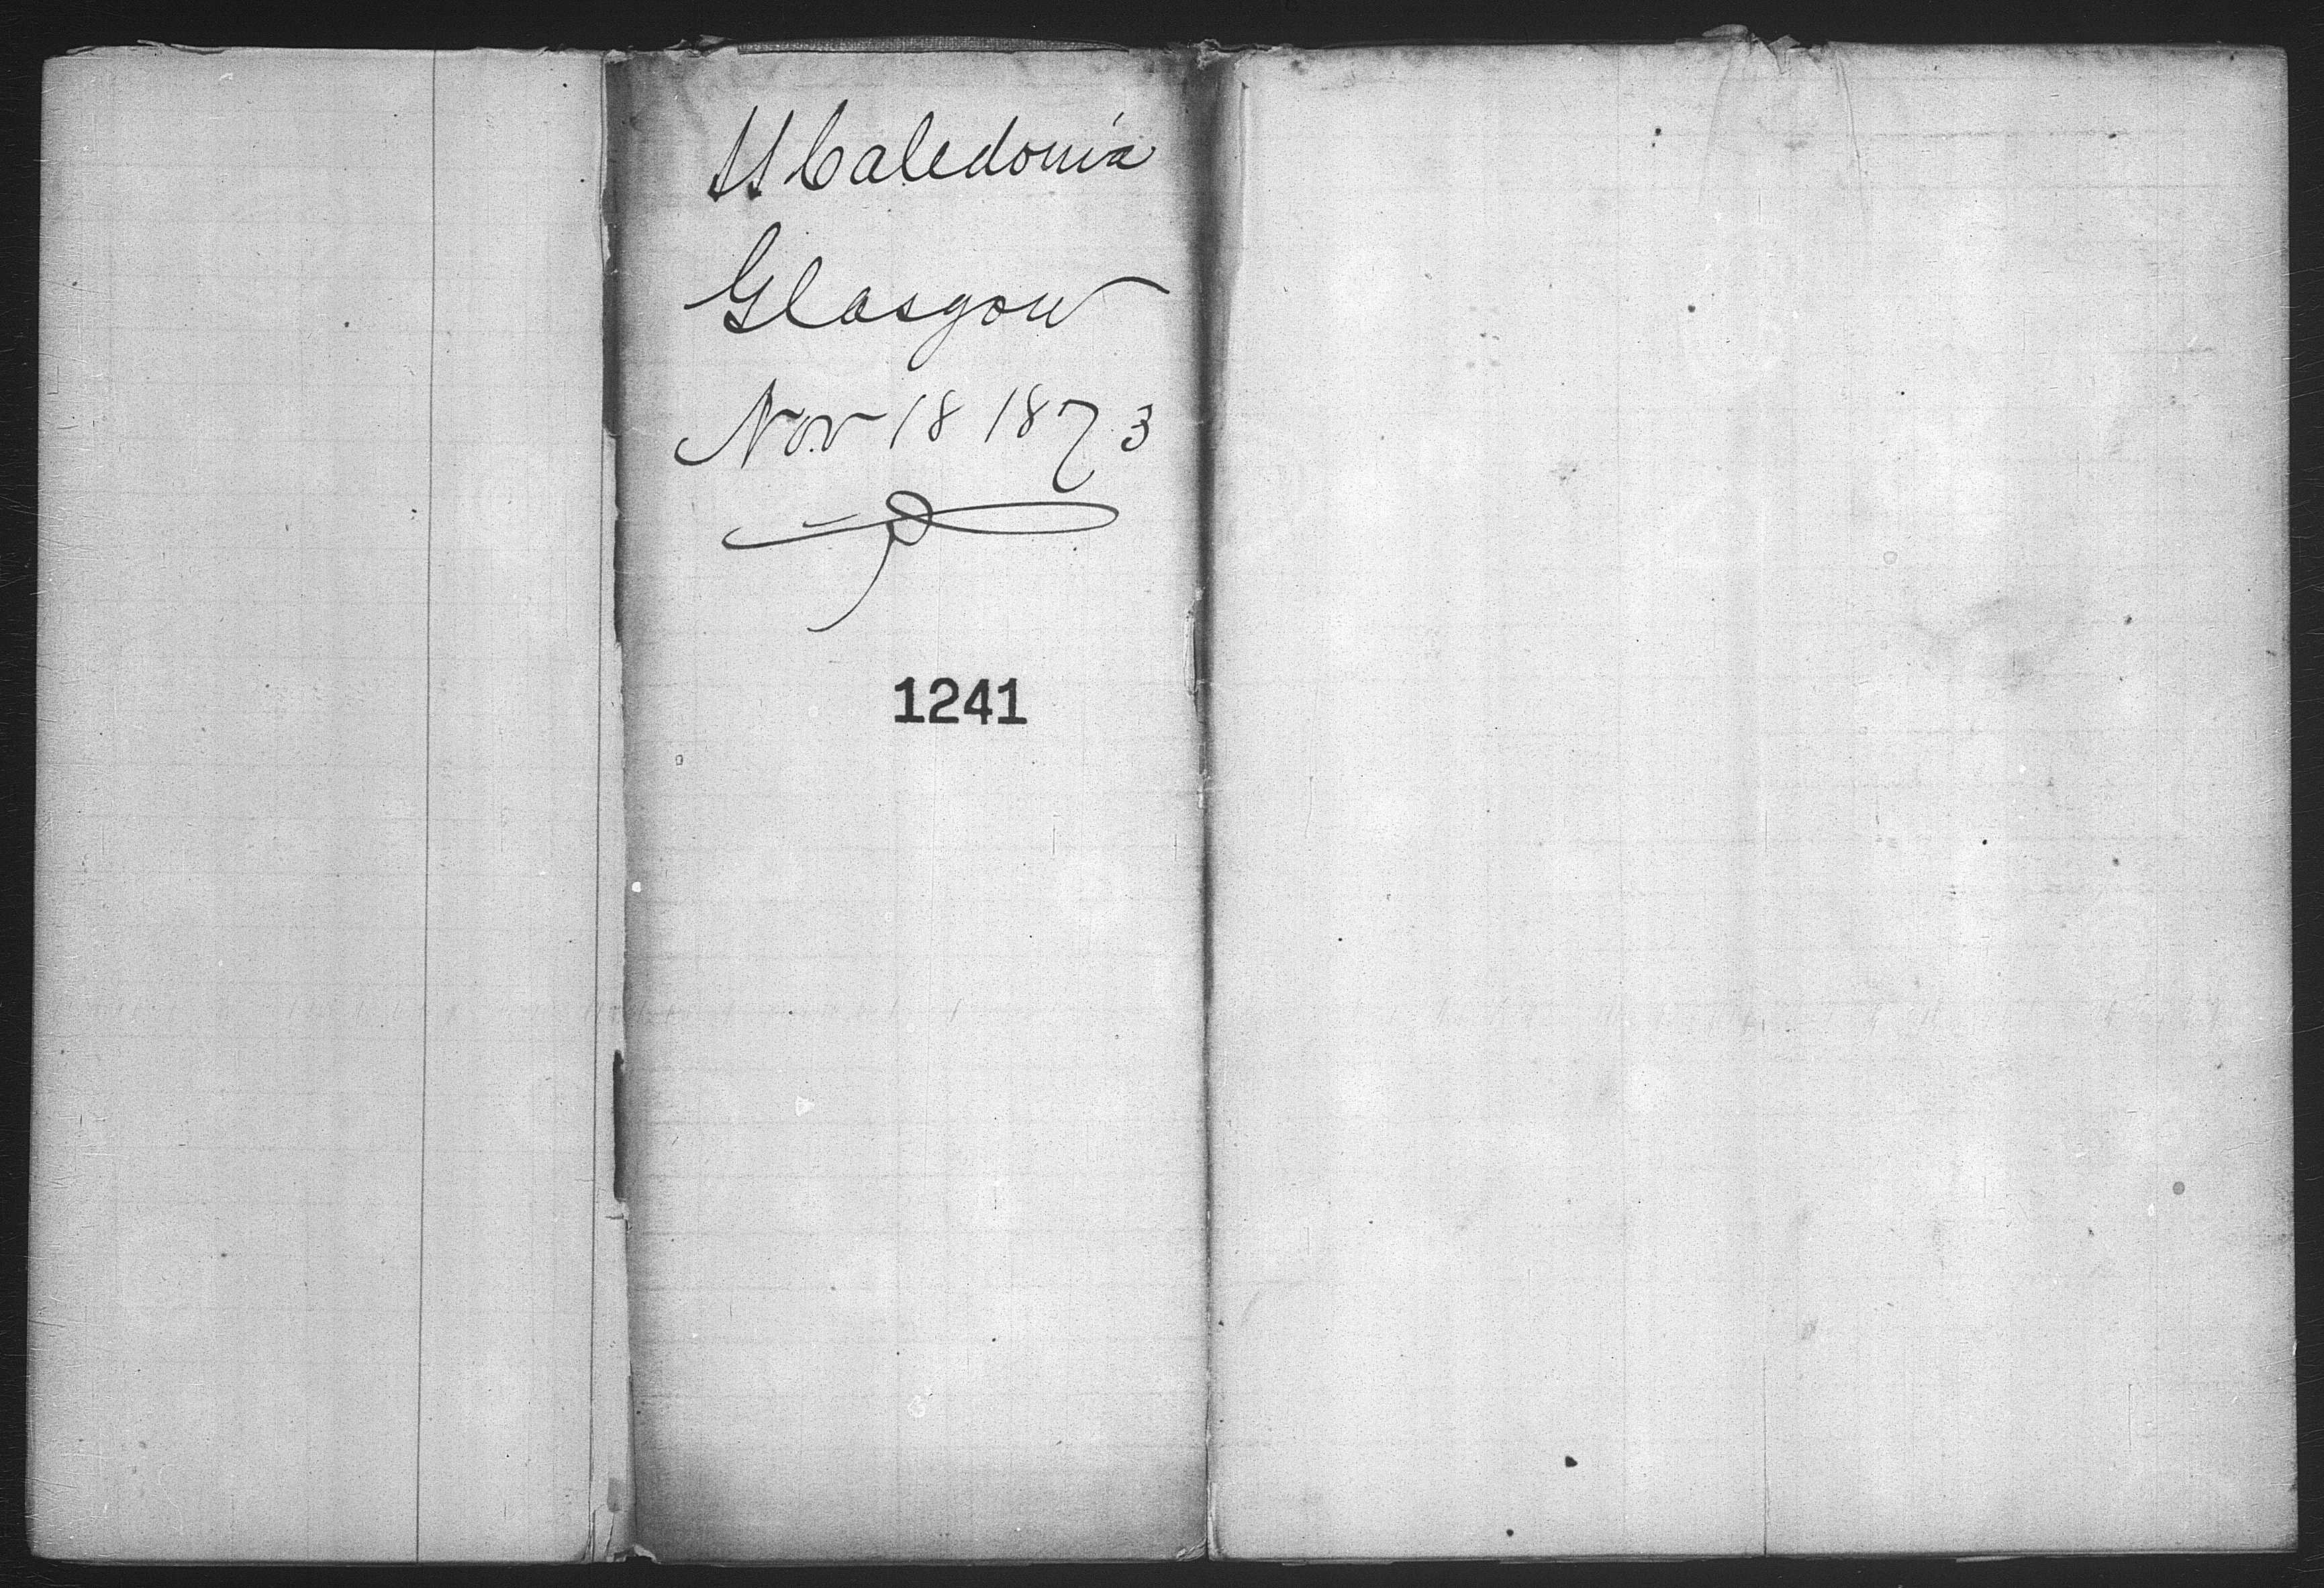 SS Caledonia
Glasgow
Nov 18 1873
1241